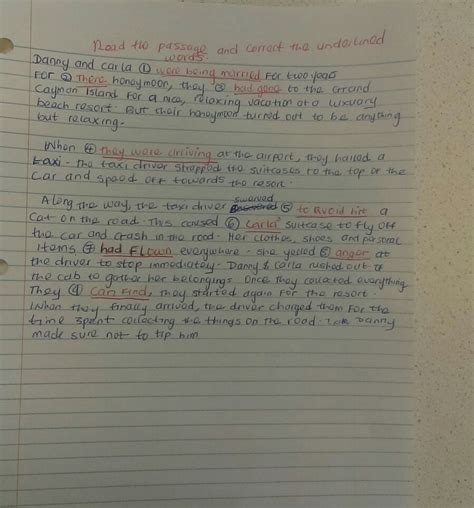 Read the passage and correct the underlined
words.
Danny and Carla ① were being married for two years
For ② There honeymoon, they ③ had gone to the Grand
Cayman Island for a nice, relaxing vacation at a luxury
beach resort. But their honeymoon turned out to be anything
but relaxing.
When ④ they were arriving at the airport, they hailed a
taxi. the taxi driver strapped the suitcases to the top of the
car and speed off towards the resort.
Along the way, the taxi driver swerved ⑤ to avoid hit a
Cat on the road. This caused ⑥ Carla' suitcase to fly off
the car and crash in the road. Her clothes, shoes and
items ⑦ had flown everywhere. she yelled ⑧ anger at
the driver to stop immediately. Danny & Carla rushed out of
the cab to gather her belongings. Once they collected everything
They ⑨ Can find, they started again for the resort.
When they finally arrived, the driver charged them for the
time spent collecting the things on the road. Danny
made sure not to tip him